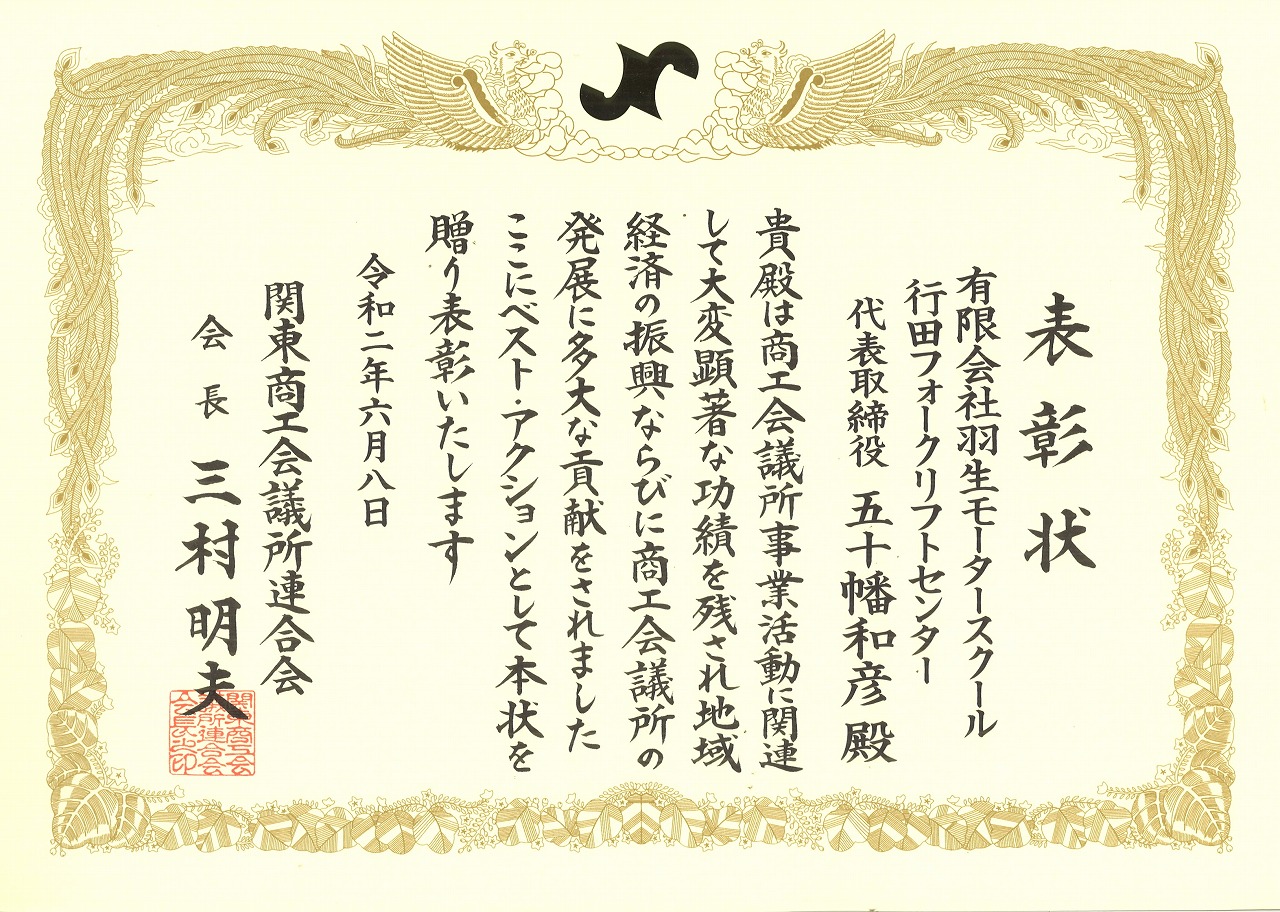 表彰状
有限会社羽生モータースクール
行田フォークリフトセンター
代表取締役 五十幡和彦殿
貴殿は商工会議所事業活動に関連
して大変顕著な功績を残され地域
経済の振興ならびに商工会議所の
発展に多大な貢献をされました
ここにベスト・アクションとして本状を
贈り表彰いたします
令和二年六月八日
関東商工会議所連合会
会長 三村明夫
関東商工会
議所連合会
会長之印